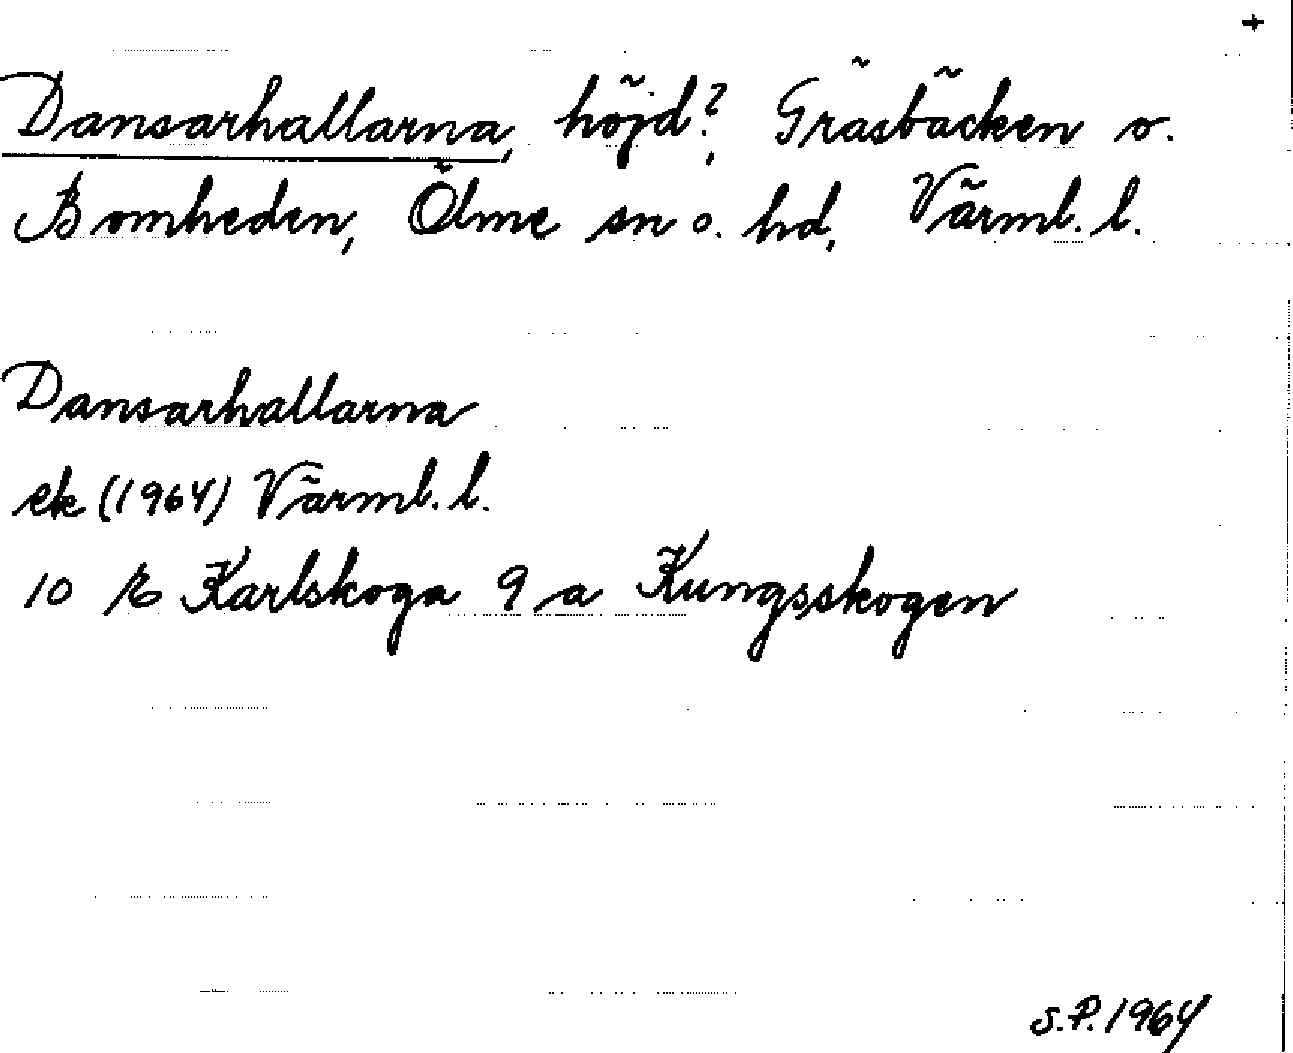 +
Dansarhallarna, höjd?, Gräsbäcken o.
Bomheden, Ölme sn o. hd, Värml. l.
Dansarhallarna
ek (1964) Värml. l.
10 E Karlskoga 9 a Kungsskogen
S.P. 1964